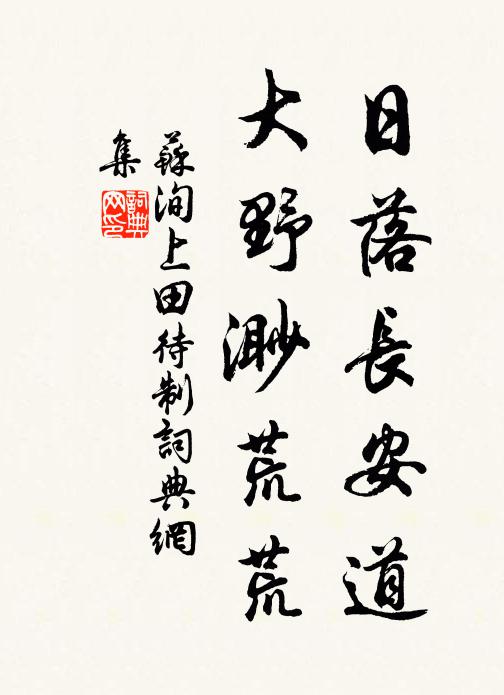 日落長安道
大野渺荒荒
蘇洵上田待制詞典網
集
詞典
网印